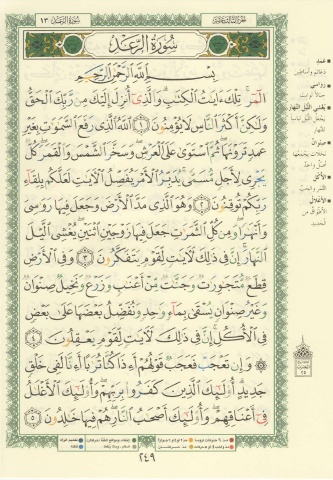 سُورَةُ الرَّعْدِ
١٣
سُورَةُ الرَّعْدِ
بِسْمِ اللَّهِ الرَّحْمَٰنِ الرَّحِيمِ
الٓمٓر ۚ تِلْكَ ءَايَٰتُ الْكِتَٰبِ ۗ وَالَّذِىٓ أُنزِلَ إِلَيْكَ مِن رَّبِّكَ الْحَقُّ
وَلَٰكِنَّ أَكْثَرَ النَّاسِ لَا يُؤْمِنُونَ ١ اللَّهُ الَّذِى رَفَعَ السَّمَٰوَٰتِ بِغَيْرِ
عَمَدٍ تَرَوْنَهَا ۖ ثُمَّ اسْتَوَىٰ عَلَى الْعَرْشِ ۖ وَسَخَّرَ الشَّمْسَ وَالْقَمَرَ ۖ كُلٌّ
يَجْرِى لِأَجَلٍ مُّسَمًّى ۚ يُدَبِّرُ الْأَمْرَ يُفَصِّلُ الْءَايَٰتِ لَعَلَّكُم بِلِقَآءِ
رَبِّكُمْ تُوقِنُونَ ٢ وَهُوَ الَّذِى مَدَّ الْأَرْضَ وَجَعَلَ فِيهَا رَوَٰسِىَ
وَأَنْهَٰرًا ۖ وَمِن كُلِّ الثَّمَرَٰتِ جَعَلَ فِيهَا زَوْجَيْنِ اثْنَيْنِ ۖ يُغْشِى الَّيْلَ
النَّهَارَ ۚ إِنَّ فِى ذَٰلِكَ لَءَايَٰتٍ لِّقَوْمٍ يَتَفَكَّرُونَ ٣ وَفِى الْأَرْضِ
قِطَعٌ مُّتَجَٰوِرَٰتٌ وَجَنَّٰتٌ مِّنْ أَعْنَٰبٍ وَزَرْعٌ وَنَخِيلٌ صِنْوَانٌ
وَغَيْرُ صِنْوَانٍ يُسْقَىٰ بِمَآءٍ وَٰحِدٍ وَنُفَضِّلُ بَعْضَهَا عَلَىٰ بَعْضٍ
فِى الْأُكُلِ ۚ إِنَّ فِى ذَٰلِكَ لَءَايَٰتٍ لِّقَوْمٍ يَعْقِلُونَ ٤
۞ وَإِن تَعْجَبْ فَعَجَبٌ قَوْلُهُمْ أَءِذَا كُنَّا تُرَٰبًا أَءِنَّا لَفِى خَلْقٍ
جَدِيدٍ ۗ أُو۟لَٰٓئِكَ الَّذِينَ كَفَرُوا۟ بِرَبِّهِمْ ۖ وَأُو۟لَٰٓئِكَ الْأَغْلَٰلُ
فِىٓ أَعْنَاقِهِمْ ۖ وَأُو۟لَٰٓئِكَ أَصْحَٰبُ النَّارِ ۖ هُمْ فِيهَا خَٰلِدُونَ ٥
٢٤٩